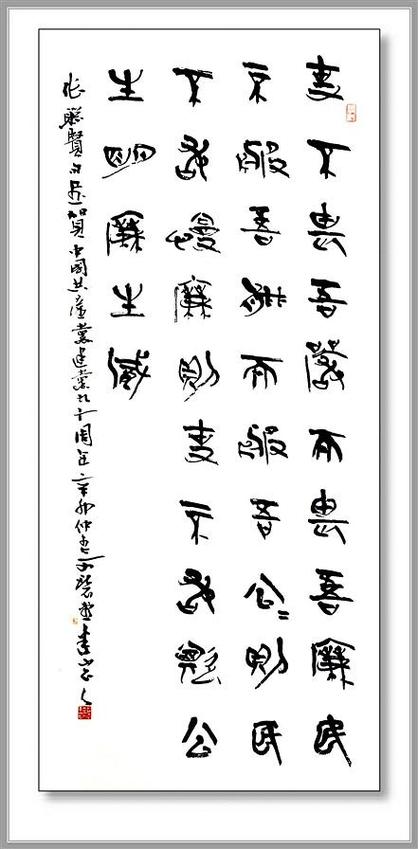 吏不畏吾嚴而畏吾廉民
不服吾能而服吾公=則民
不敢慢廉則吏不敢欺公
生明廉生威
聯賢句並賀中國共產黨建黨九十周年辛卯仲春